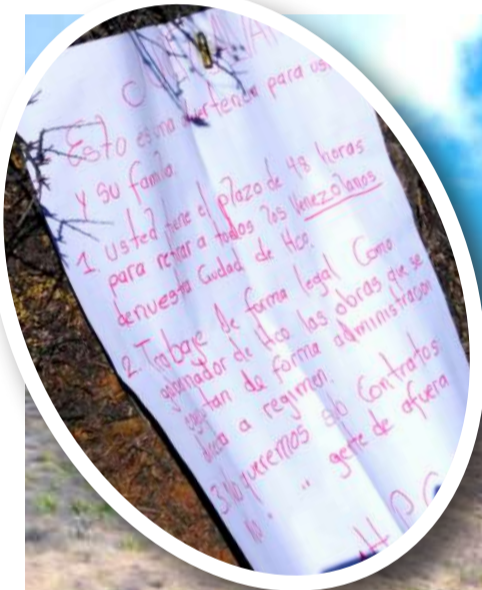 Esto es una advertencia para us
y su familia.
1 usted tiene el plazo de 48 horas
para retirar a todos los Venezolanos
de nuestra Ciudad de Hco.
2. Trabaje de forma legal Como
gobernador de Hco las obras que se
ejecutan de forma administración
directa a regimen.
3 No queremos sub Contratos.
no " " gente de afuera